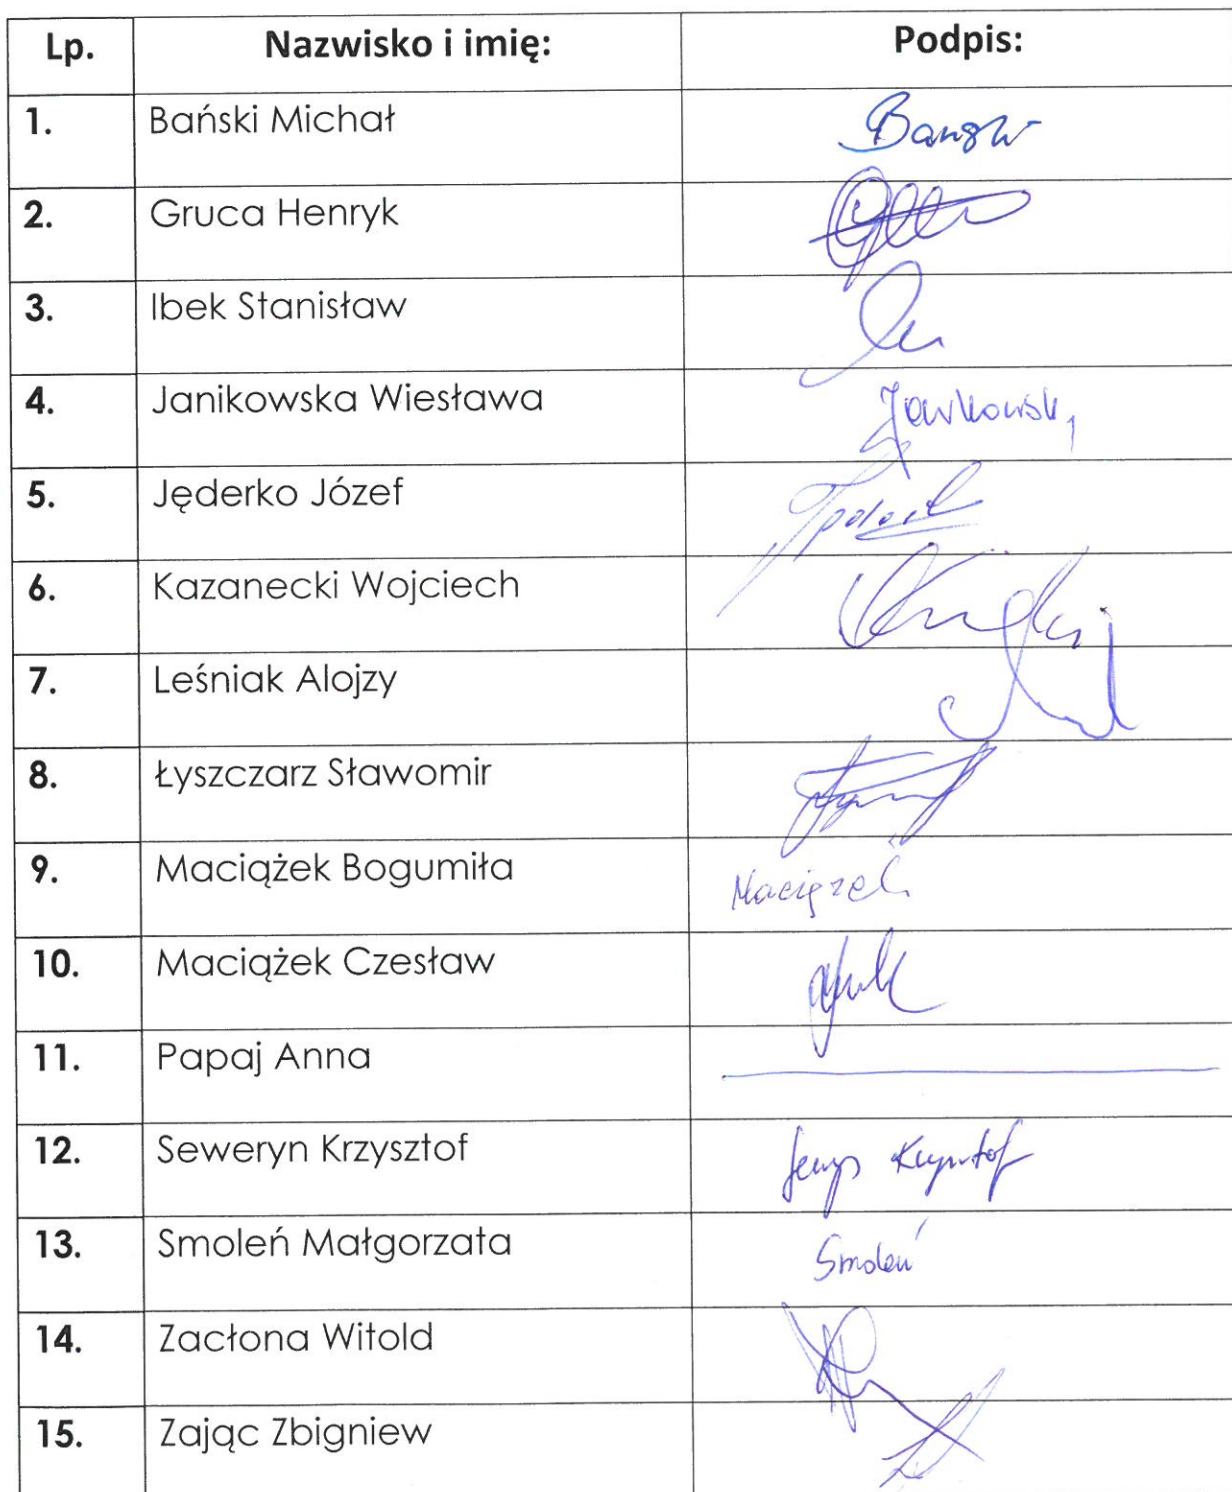 Lp. Nazwisko i imię: Podpis:
1. Bański Michał Bański
2. Gruca Henryk
3. Ibek Stanisław
4. Janikowska Wiesława
5. Jęderko Józef
6. Kazanecki Wojciech
7. Leśniak Alojzy
8. Łyszczarz Sławomir
9. Maciążek Bogumiła Maciążek
10. Maciążek Czesław
11. Papaj Anna
12. Seweryn Krzysztof Krzysztof
13. Smoleń Małgorzata Smoleń
14. Zacłona Witold
15. Zając Zbigniew